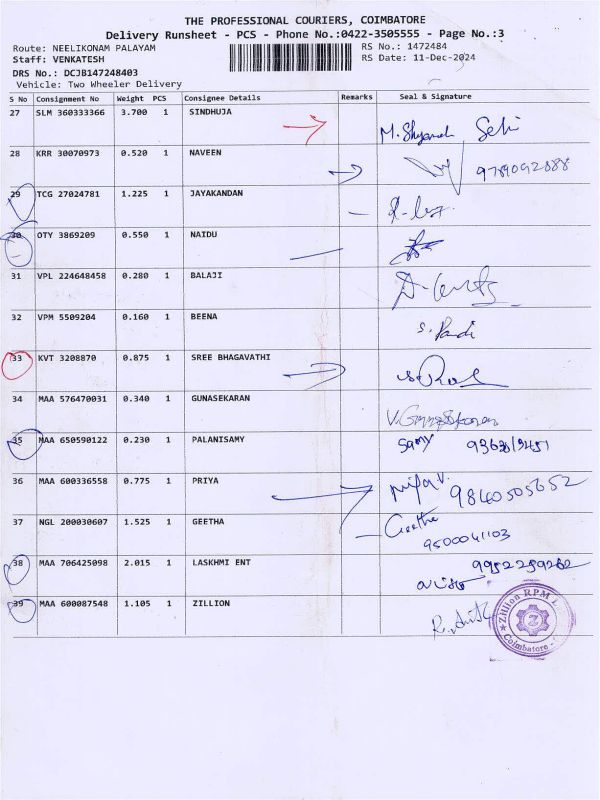 THE PROFESSIONAL COURIERS, COIMBATORE
Delivery Runsheet - PCS - Phone No.:0422-3505555 - Page No.:3
Route: NEELIKONAM PALAYAM RS No.: 1472484
Staff: VENKATESH RS Date: 11-Dec-2024
DRS No.: DCJB147248403
Vehicle: Two Wheeler Delivery
S No Consignment No Weight PCS Consignee Details Remarks Seal & Signature
27 SLM 360333366 3.700 1 SINDHUJA
28 KRR 30070973 0.520 1 NAVEEN 9789092888
29 TCG 27024781 1.225 1 JAYAKANDAN
30 OTY 3869209 0.550 1 NAIDU
31 VPL 224648458 0.280 1 BALAJI
32 VPM 5509204 0.160 1 BEENA
33 KVT 3208870 0.875 1 SREE BHAGAVATHI
34 MAA 576470031 0.340 1 GUNASEKARAN V.Gunasekaran
35 MAA 650590122 0.230 1 PALANISAMY Samy
36 MAA 600336558 0.775 1 PRIYA 9840505652
37 NGL 200030607 1.525 1 GEETHA Geetha
9500041103
38 MAA 706425098 2.015 1 LASKHMI ENT 9952259262
39 MAA 600087548 1.105 1 ZILLION
Zillion RPM
Z
Coimbatore